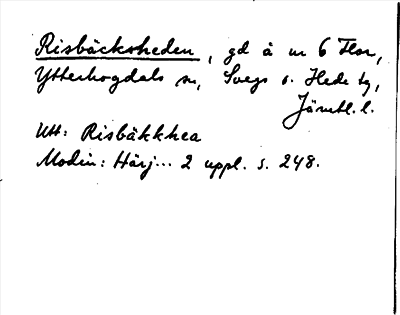 Risbäcksheden, gd å nr 6 Flor,
Ytterhogdals sn, Svegs o. Hede tg,
Jämtl. l.
Utt: Risbäkkhea
Modin: Härj... 2 uppl. s. 248.